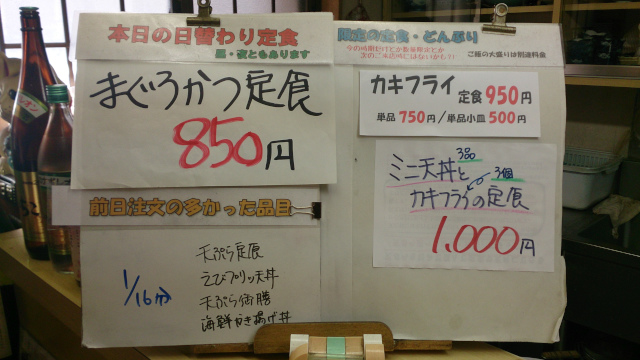 本日の日替わり定食
昼・夜ともあります
まぐろかつ定食
850円
前日注文の多かった品目
1/16分
天ぷら定食
えびプリッ天丼
天ぷら御膳
海鮮かき揚げ丼
限定の定食・どんぶり
ご飯の大盛りは別途料金
カキフライ
定食950円
単品750円/単品小皿500円
3品
ミニ天丼と
3個
カキフライの定食
1,000円